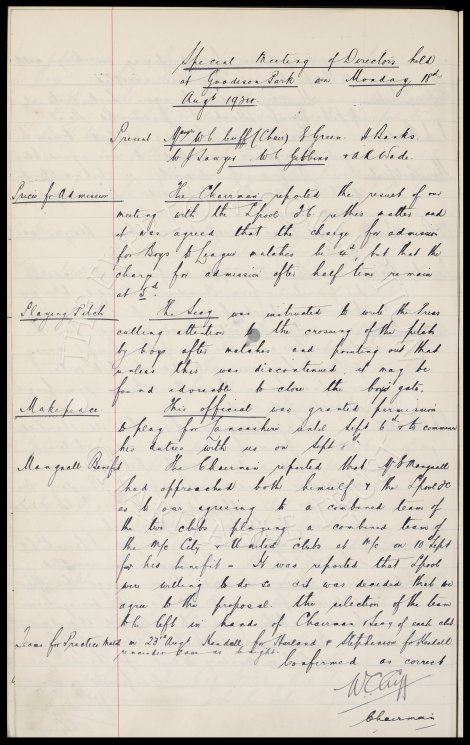 Special Meeting of Directors held
at Goodison Park on Monday 18th
Augt
Present Messrs W C Cuff (Chair) E Green. H Banks.
W J Sawyer. W C Gibbins & A R Wade.
Prices for Admission The Chairman reported the result of our
meeting with the Lpool F C re this matter and
it was agreed that the charge for admission
for Boys to League matches be 4d, but that the
charge for admission after half time remain
at 3d.
Playing Pitch The Secy was instructed to write the Press
calling attention to the crossing of the pitch
by boys after matches and pointing out that
unless this was discontinued it may be
found advisable to close the boys' gate.
Makepeace This official was granted permission
to play for Lancashire until Sept 6th & to commence
his duties with us on Sept
Mangnall Benefit The Chairman reported that Mr E Mangnall
had approached both himself & the Lpool FC
as to our agreeing to a combined team of
the two clubs playing a combined team of
the M/c City & United clubs at M/c on 10 Sept
for his benefit - It was reported that Lpool
were willing to do so & it was decided that we
agree to the proposal. the selection of the team
to be left in hands of Chairman & Secy of each club
Teams for Practice Match on 23rd Augt Kendall for & Stephenson for Kendall
remainder same as
Confirmed as correct
W C Cuff
Chairman